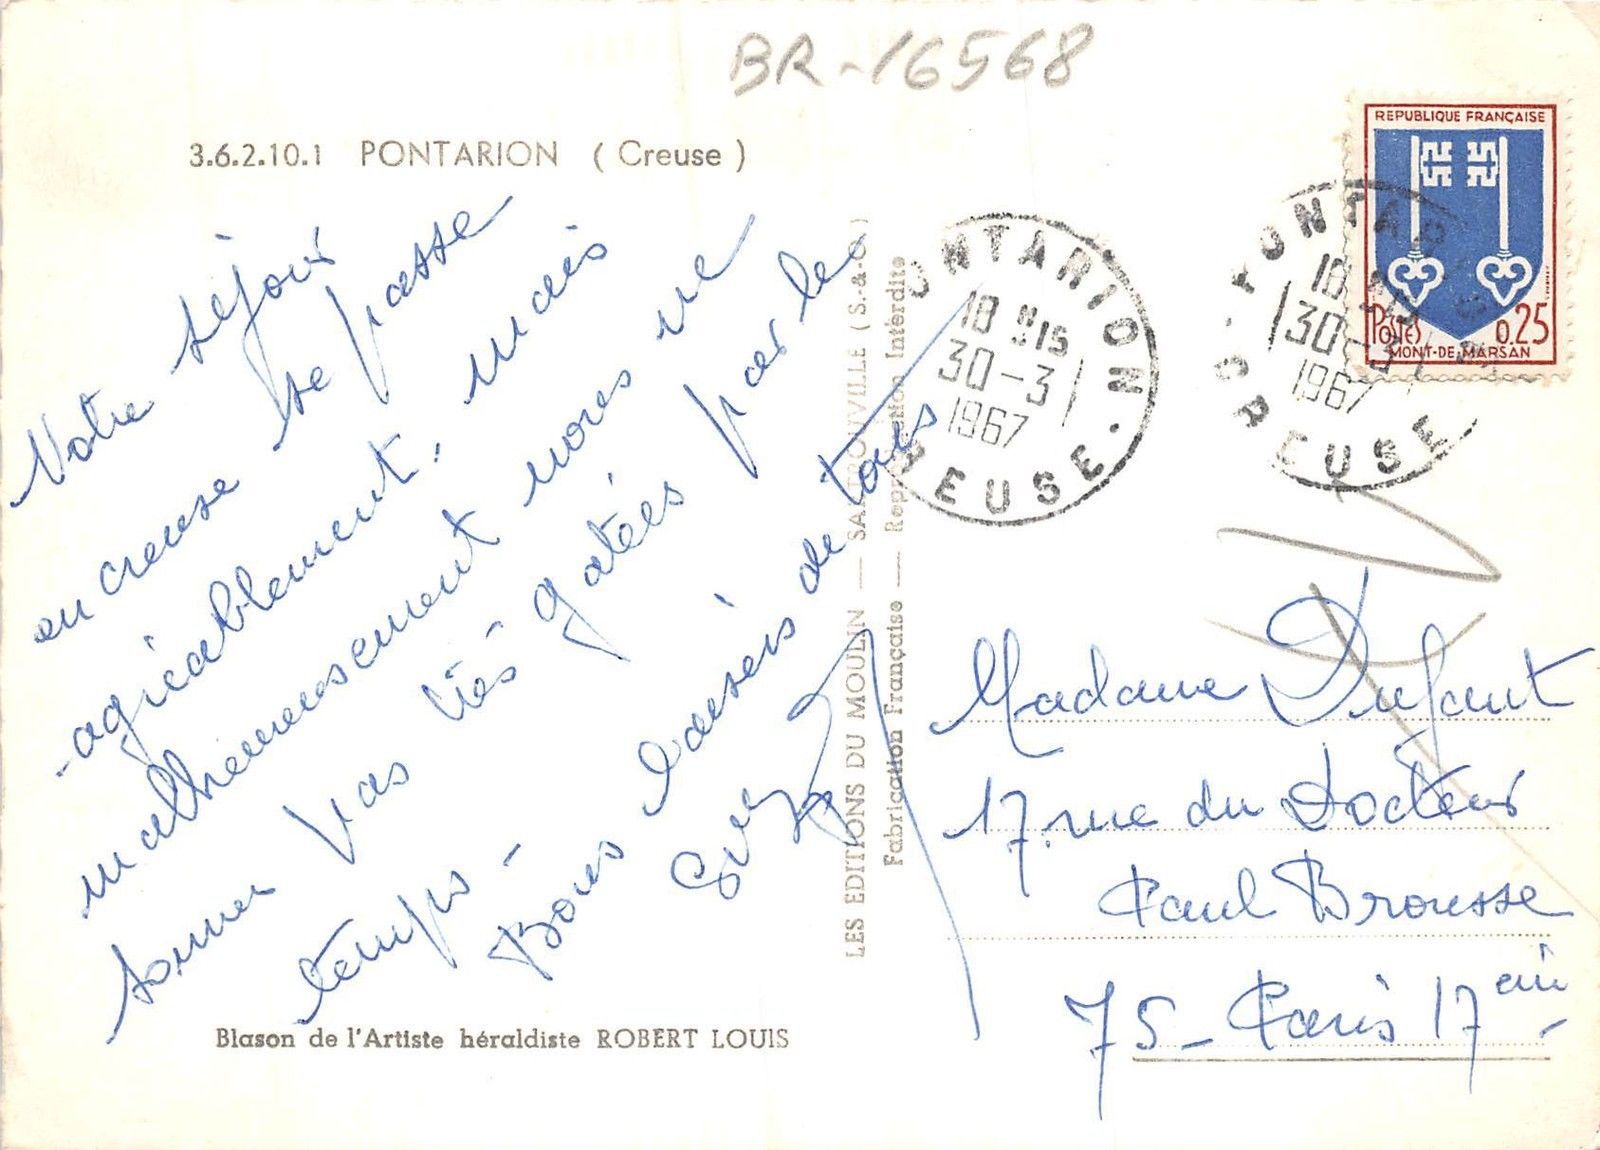 BR-16568
3.6.2.10.1 PONTARION ( Creuse )
Votre séjour
en creuse se passe
agréablement, mais
malheureusement nous ne
sommes pas très gatées par les
temps -
Bons baisers de tous
LES EDITIONS DU MOULIN — SARTROUVILLE (S.-&-O.)
Fabrication Française — Reproduction Interdite
PONTARION
18 H 15
30-3
1967
CREUSE
PONTARION
18 H 15
30-3
1967
CREUSE
REPUBLIQUE FRANÇAISE
POSTES 0.25
MONT-DE-MARSAN
Madame Dufant
17, rue du Docteur
Paul Brousse
75 - Paris 17
Blason de l'Artiste héraldiste ROBERT LOUIS